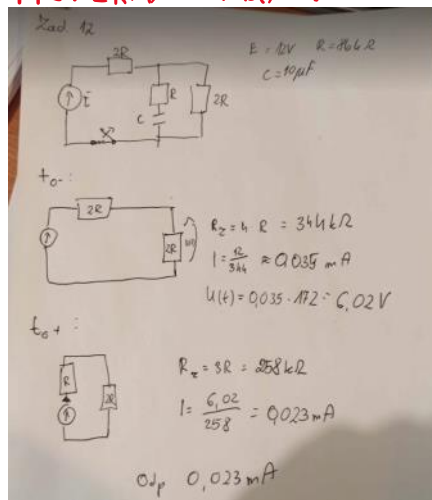 Zad. 12
2R
E = 12V R = 86k Ω
C = 10μF
E
R
2R
C
t₀- :
2R
2R
u(t)
R_z = 4 R = 344kΩ
I = 12/344 ≈ 0,035 mA
U(t) = 0,035 · 172 = 6,02V
t₀+ :
R
2R
R_z = 3R = 258kΩ
I = 6,02/258 = 0,023mA
Odp 0,023mA